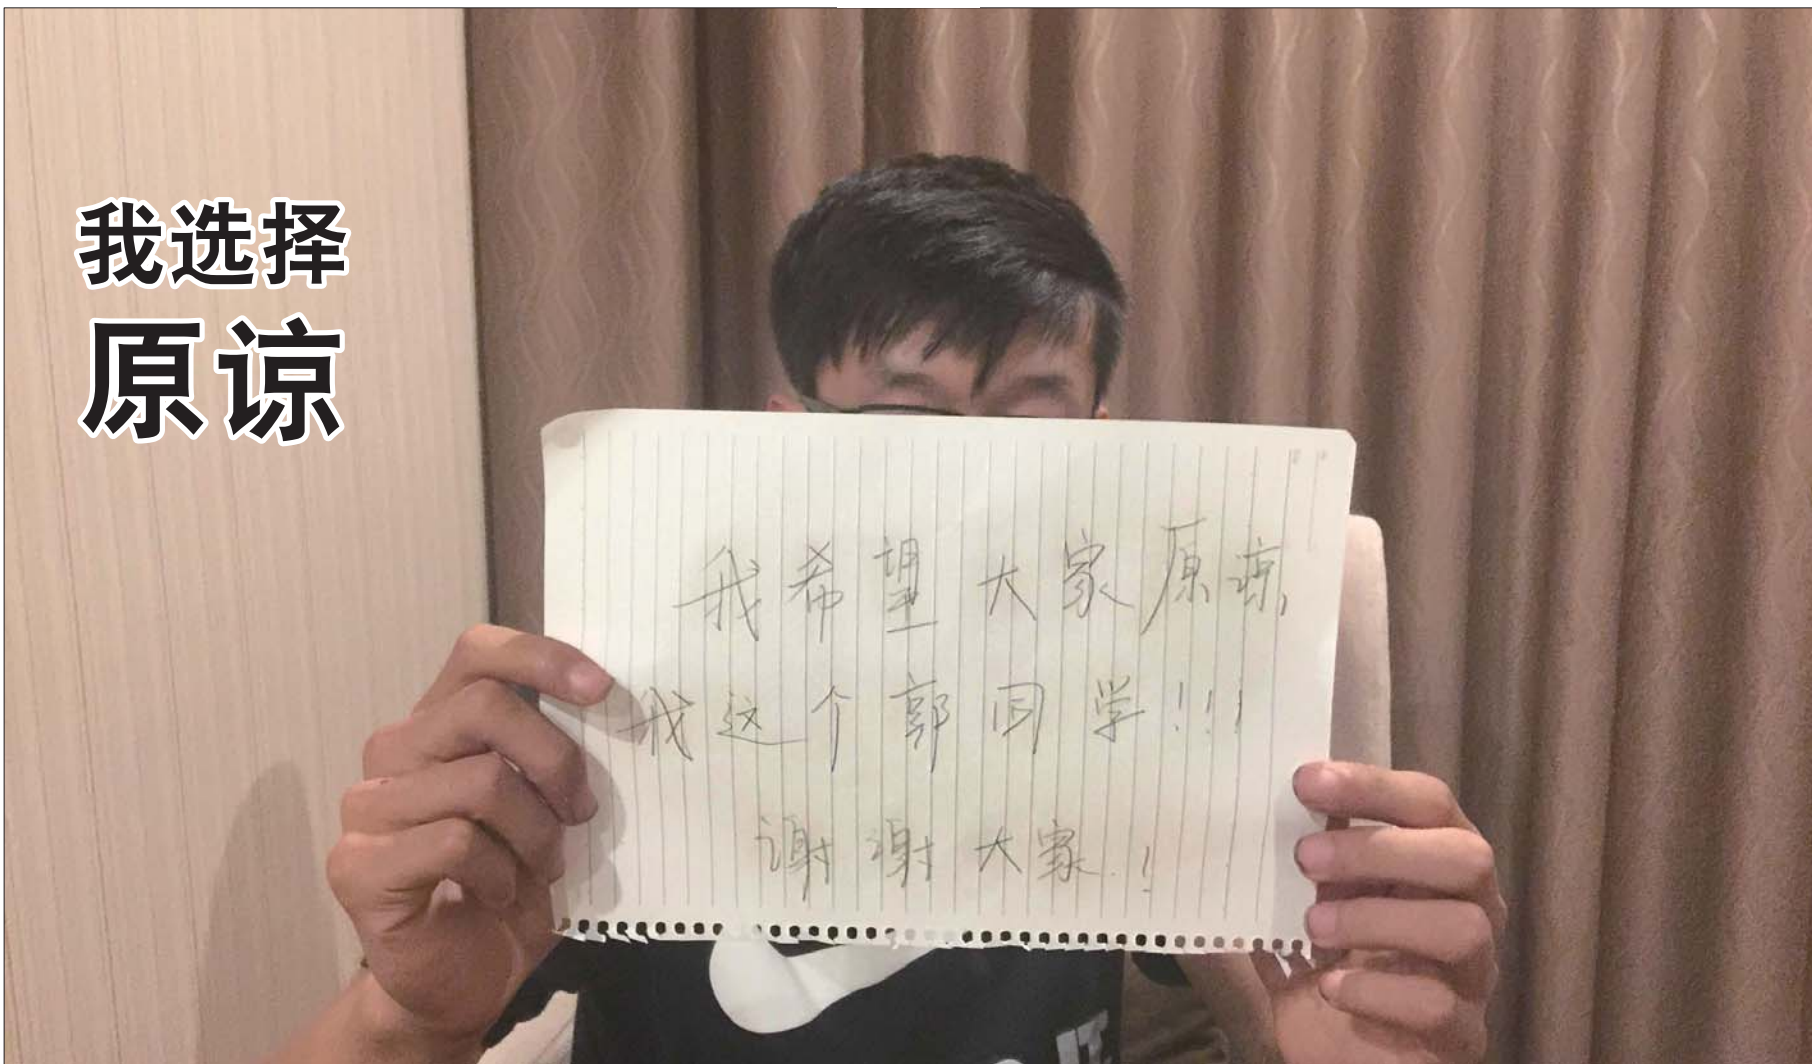 我选择
原谅
我希望大家原谅
我这个郭同学!!!
谢谢大家!